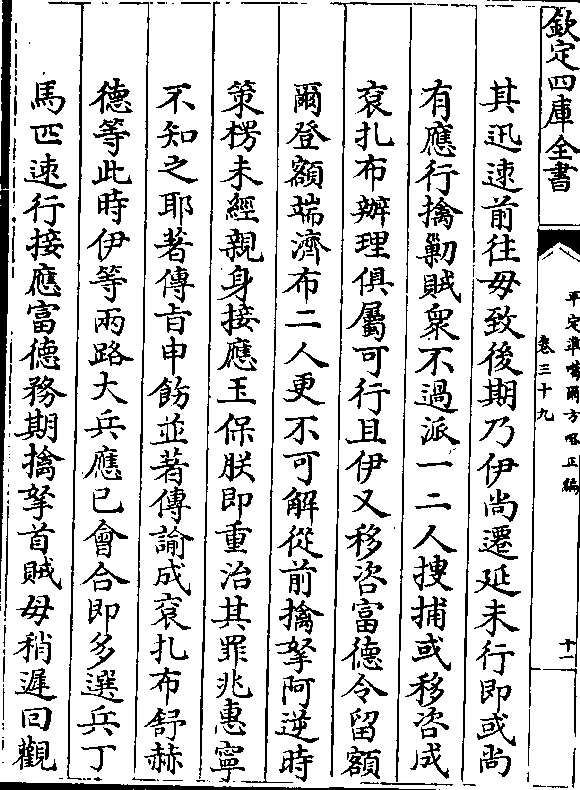 欽定四庫全書
平定準噶爾方略正編
卷三十九
十一
其迅速前往毋致後期乃伊尚遷延未行即或尚
有應行擒勦賊衆不過派一二人搜捕或移咨成
衮扎布辦理俱屬可行且伊又移咨富德令留額
爾登額端濟布二人更不可解從前擒拏阿逆時
策楞未經親身接應玉保朕即重治其罪兆惠寧
不知之耶著傳旨申飭並著傳諭成衮扎布舒赫
德等此時伊等兩路大兵應已會合即多選兵丁
馬匹速行接應富德務期擒拏首賊毋稍遲回觀